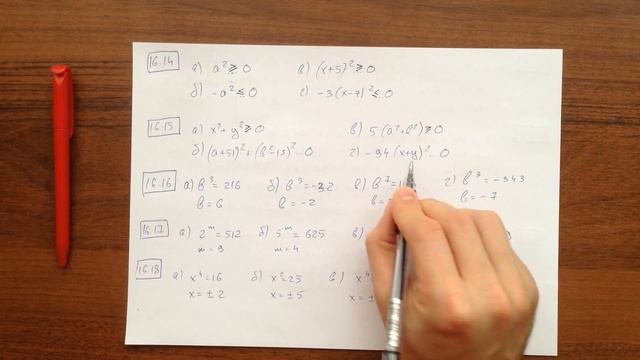 16.14 а) a² ≥ 0 в) (x+5)² ≥ 0
б) -a² ≤ 0 г) -3(x-7)² ≤ 0
16.15 а) x²+y² ≥ 0 в) 5(a²+b²) ≥ 0
б) (a+51)²+(b²-13)²...0 г) -94(x+y)²...0
16.16 а) b³=216 б) b⁵=-32 в) b⁷=1 г) b³=-343
b=6 b=-2 b= b=-7
16.17 а) 2ᵐ=512 б) 5ᵐ=625 в)
m=9 m=4
16.18 а) x⁴=16 б) x²=25 в) x⁴
x=±2 x=±5 x=±